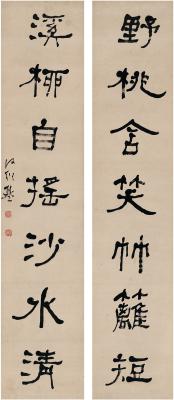 野桃含笑竹籬短
溪柳自搖沙水清